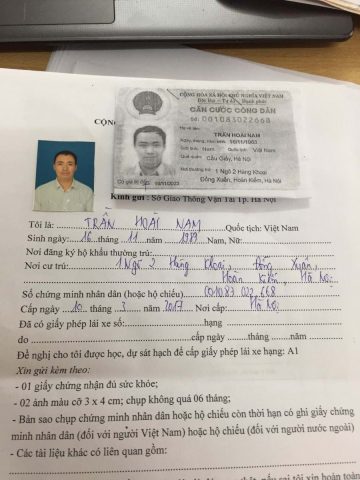 CỘNG HÒA XÃ HỘI CHỦ NGHĨA VIỆT NAM
Độc lập - Tự do - Hạnh phúc
CĂN CƯỚC CÔNG DÂN
Số: 001083022668
Họ và tên:
TRẦN HOÀI NAM
Ngày, tháng, năm sinh:
Giới tính: Nam Quốc tịch: Việt Nam
Quê quán: Cầu Giấy, Hà Nội
Nơi thường trú: 1 Ngõ 2 Hàng Khoai
Đồng Xuân, Hoàn Kiếm, Hà Nội
Có giá trị đến:
CỘNG
Kính gửi : Sở Giao Thông Vận Tải Tp. Hà Nội
Tôi là: TRẦN HOÀI NAM Quốc tịch: Việt Nam
Sinh ngày: 16 tháng 11 năm Nam, Nữ:
Nơi đăng ký hộ khẩu thường trú:
Nơi cư trú: 1 Ngõ 2 Hàng Khoai, Đồng Xuân,
Hoàn Kiếm, Hà Nội
Số chứng minh nhân dân (hoặc hộ chiếu) 001083 022 668
Cấp ngày 10 tháng 3 năm 2017 Nơi cấp: Hà Nội
Đã có giấy phép lái xe số: hạng
do cấp ngày tháng năm
Đề nghị cho tôi được học, dự sát hạch để cấp giấy phép lái xe hạng: A1
Xin gửi kèm theo:
- 01 giấy chứng nhận đủ sức khỏe;
- 02 ảnh màu cỡ 3 x 4 cm; chụp không quá 06 tháng;
- Bản sao chụp chứng minh nhân dân hoặc hộ chiếu còn thời hạn có ghi giấy chứng
minh nhân dân (đối với người Việt Nam) hoặc hộ chiếu (đối với người nước ngoài)
- Các tài liệu khác có liên quan gồm:
nếu sai tôi xin hoàn toàn